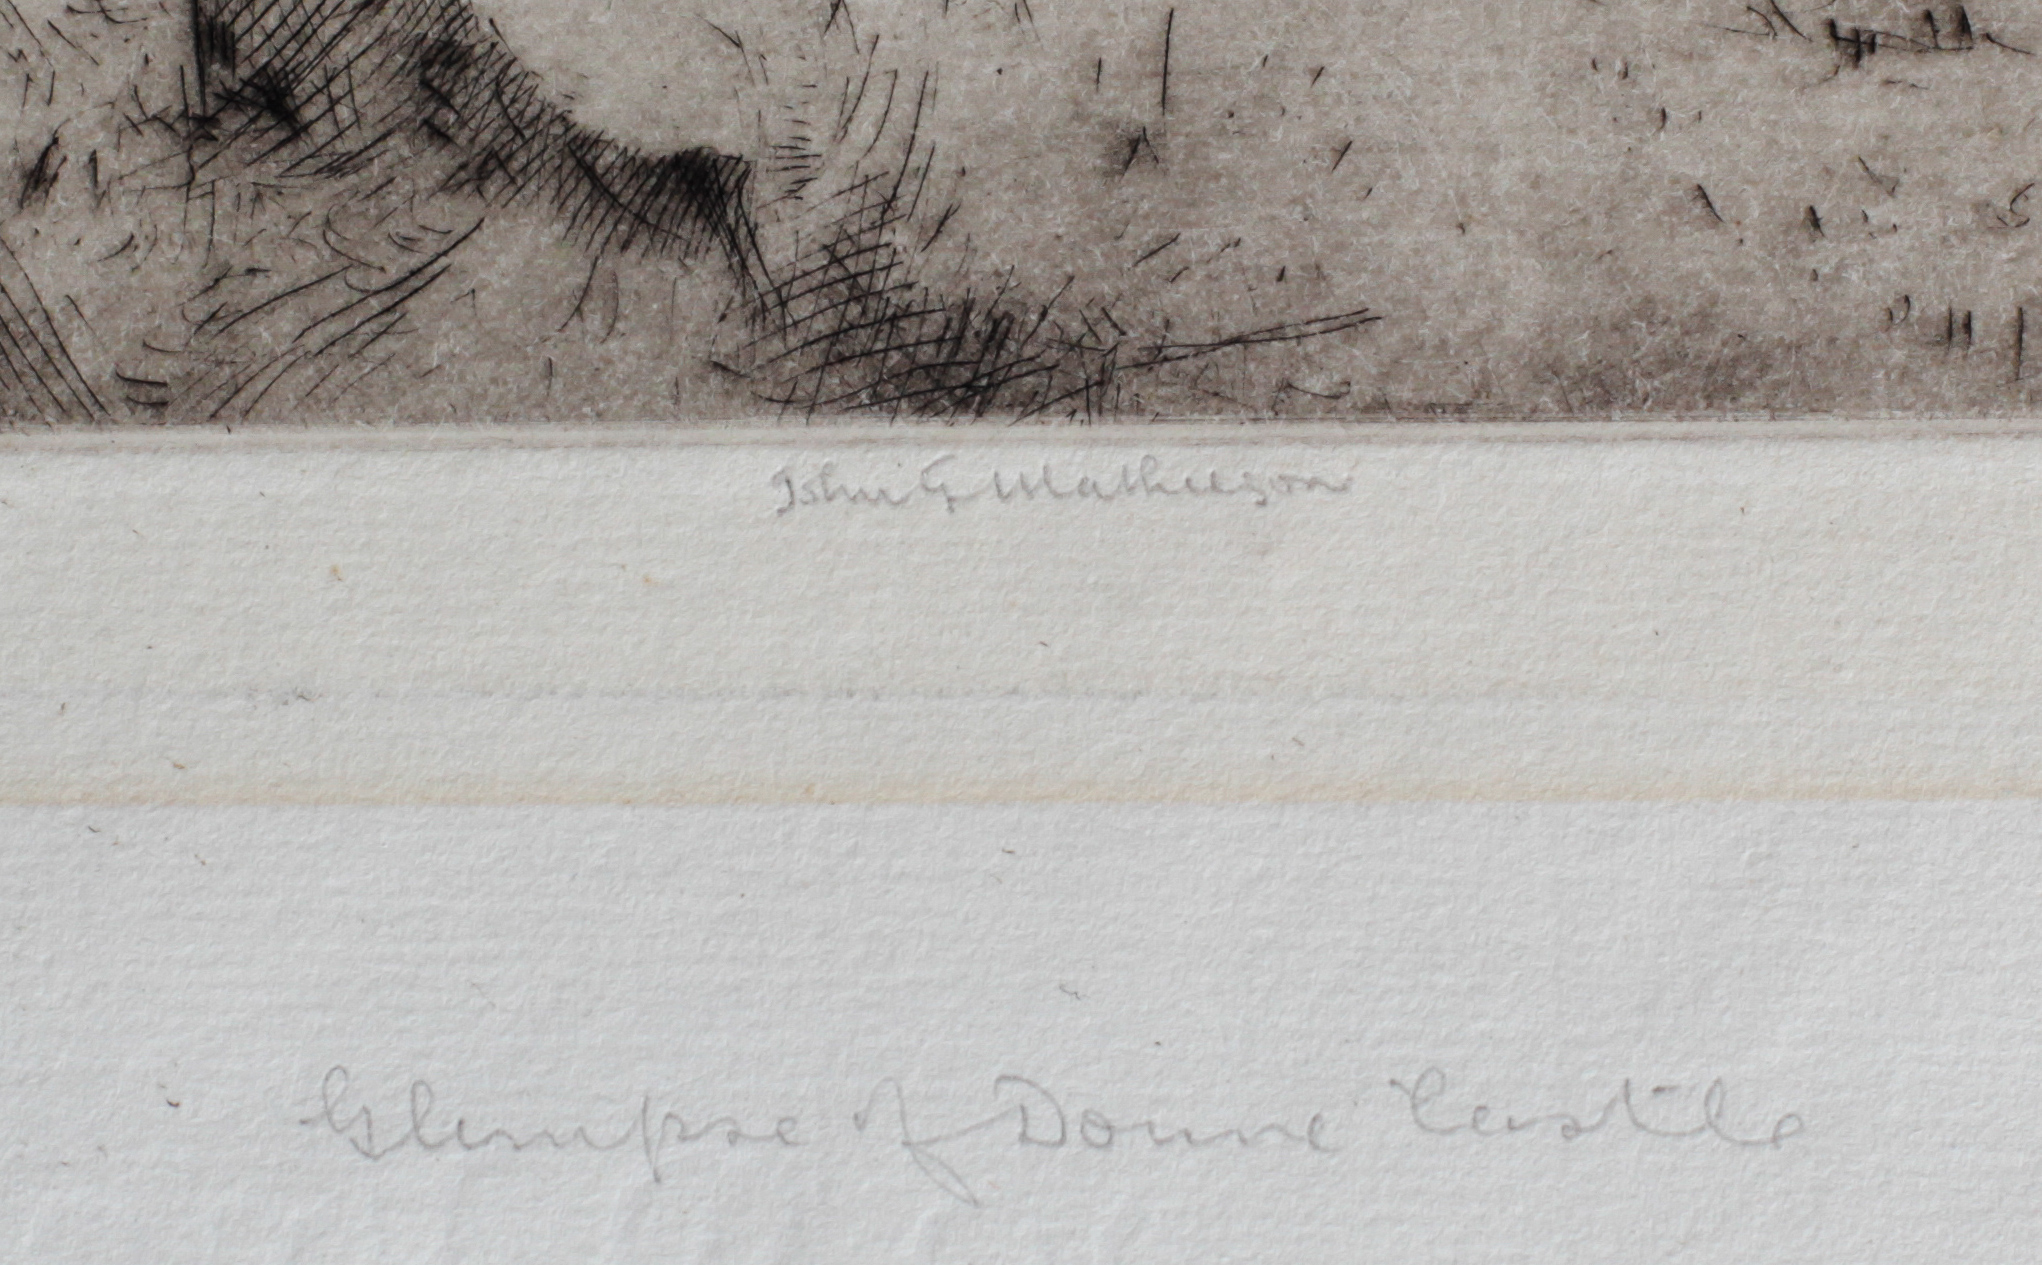 John G Mathieson
Glimpse of Doune Castle